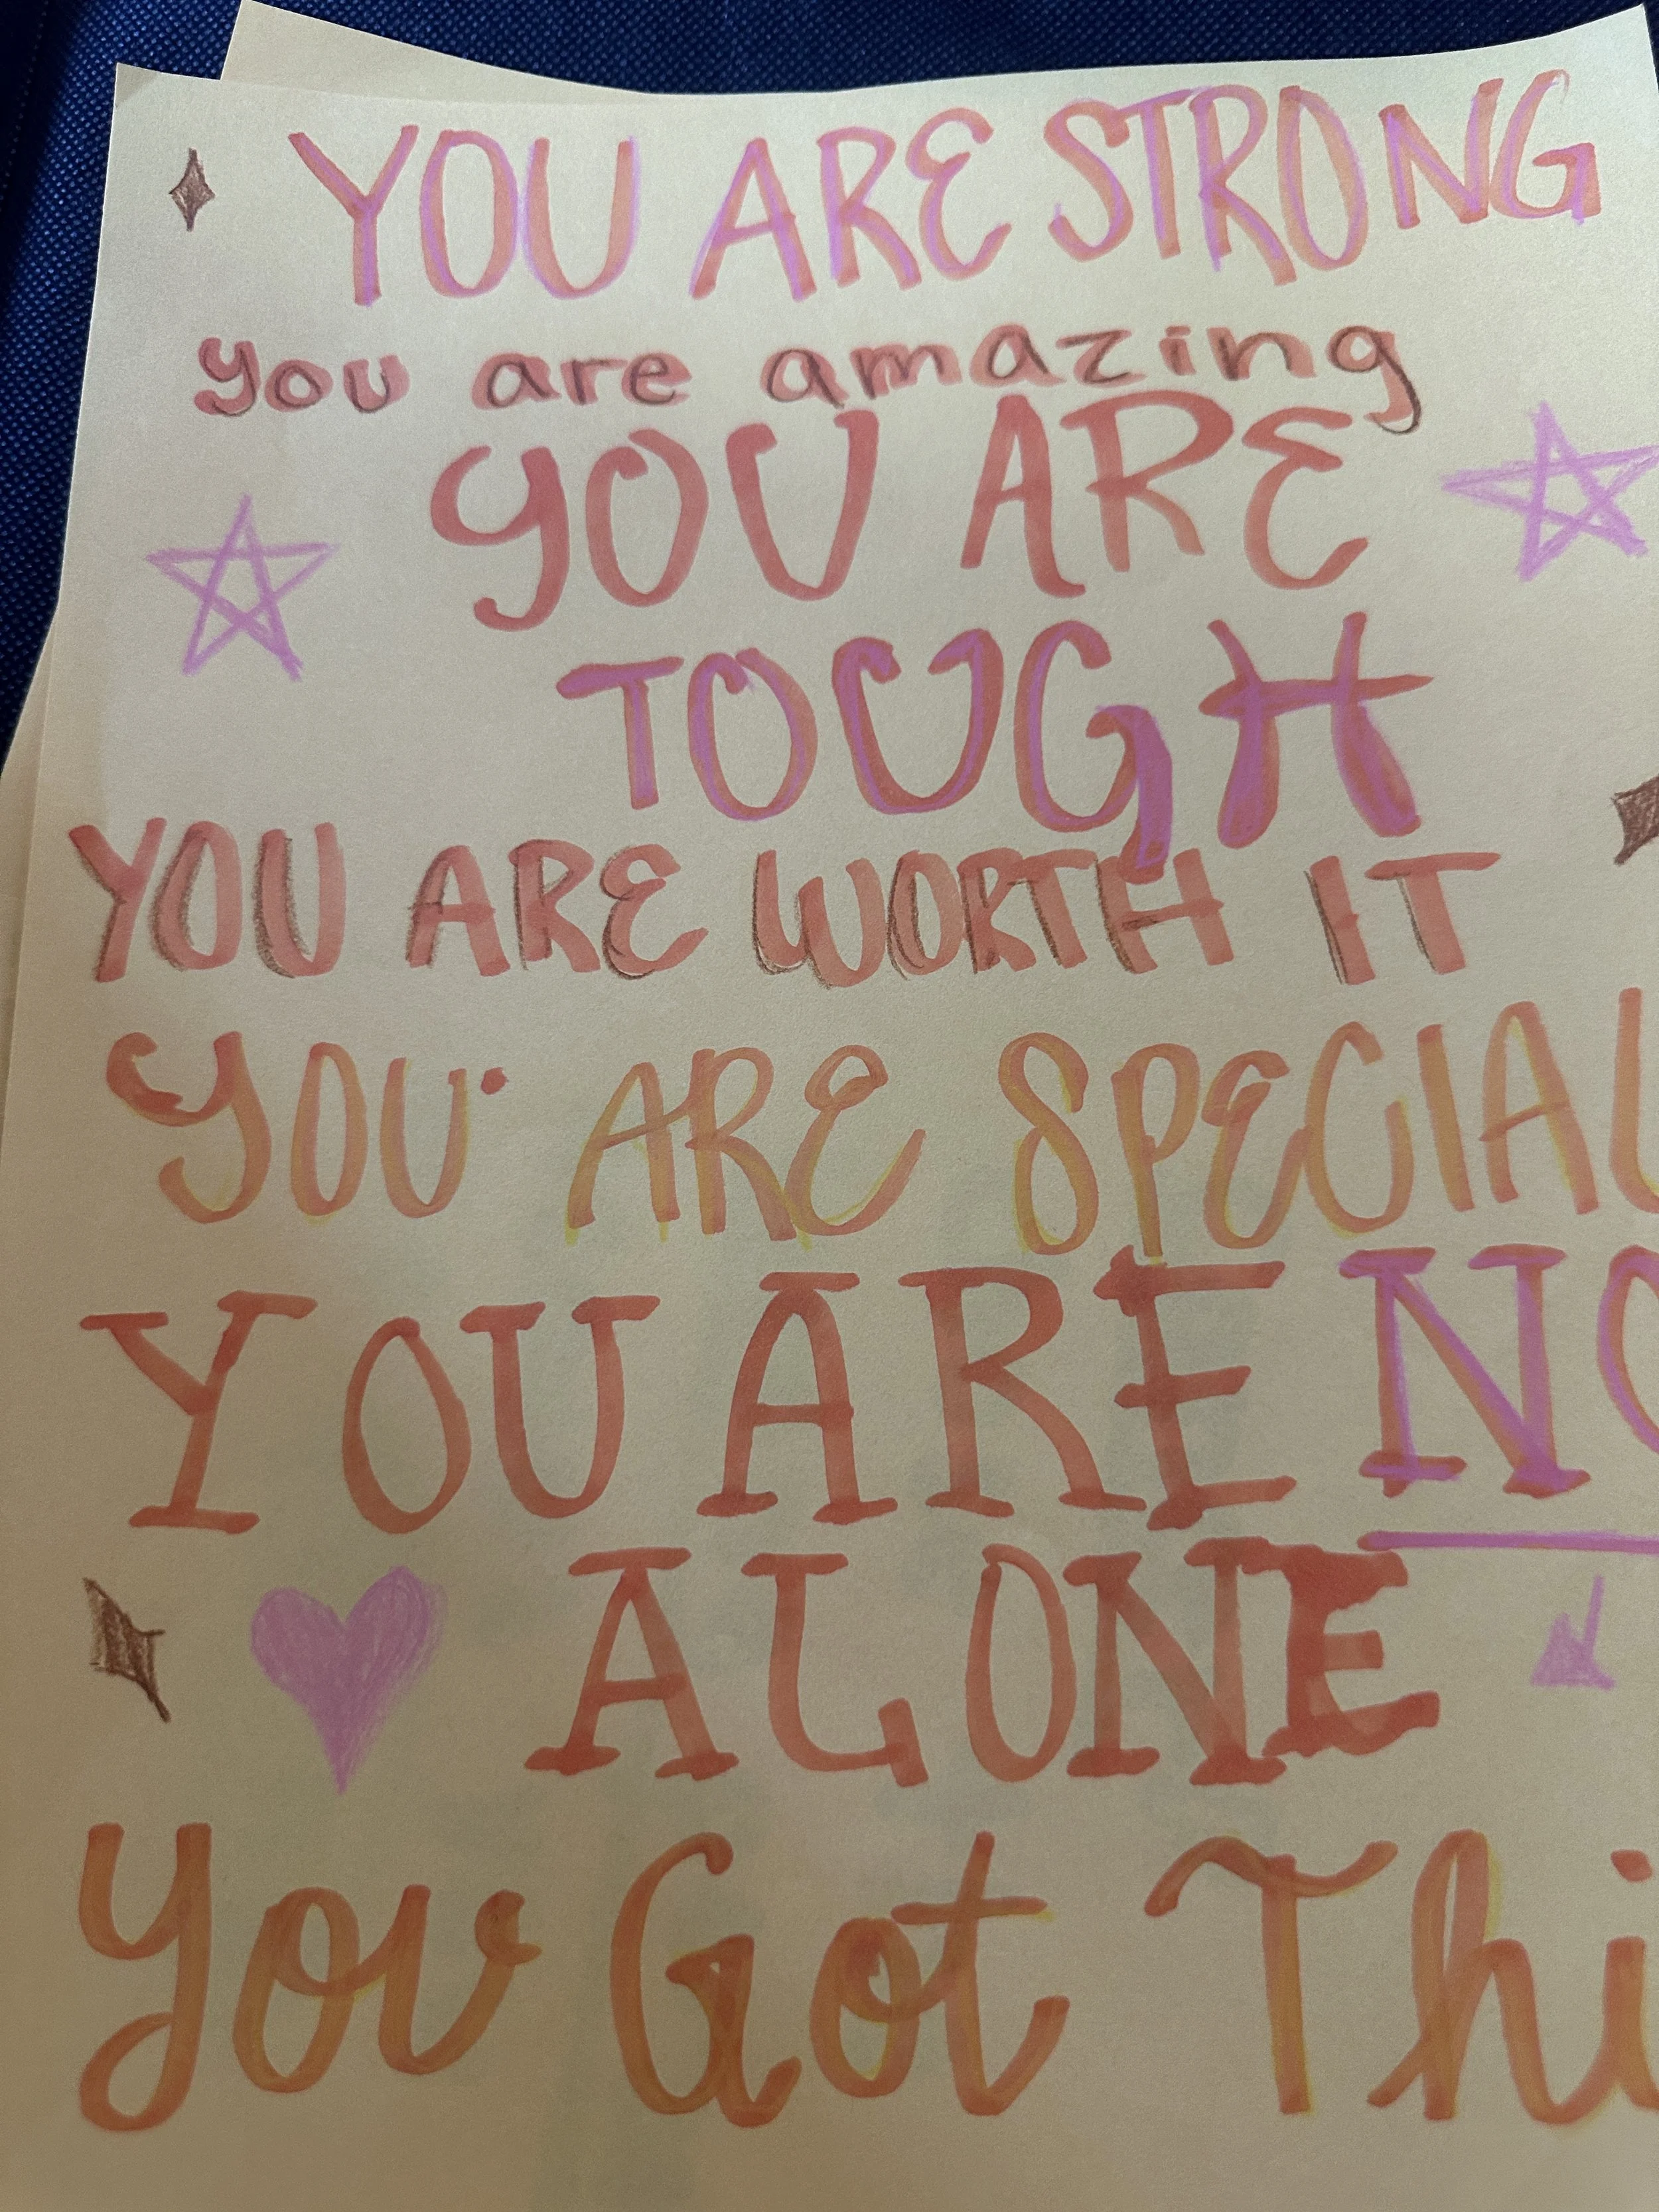 YOU ARE STRONG
you are amazing
YOU ARE
TOUGH
YOU ARE WORTH IT
YOU ARE SPECIAL
YOU ARE NO
ALONE
You Got Thi